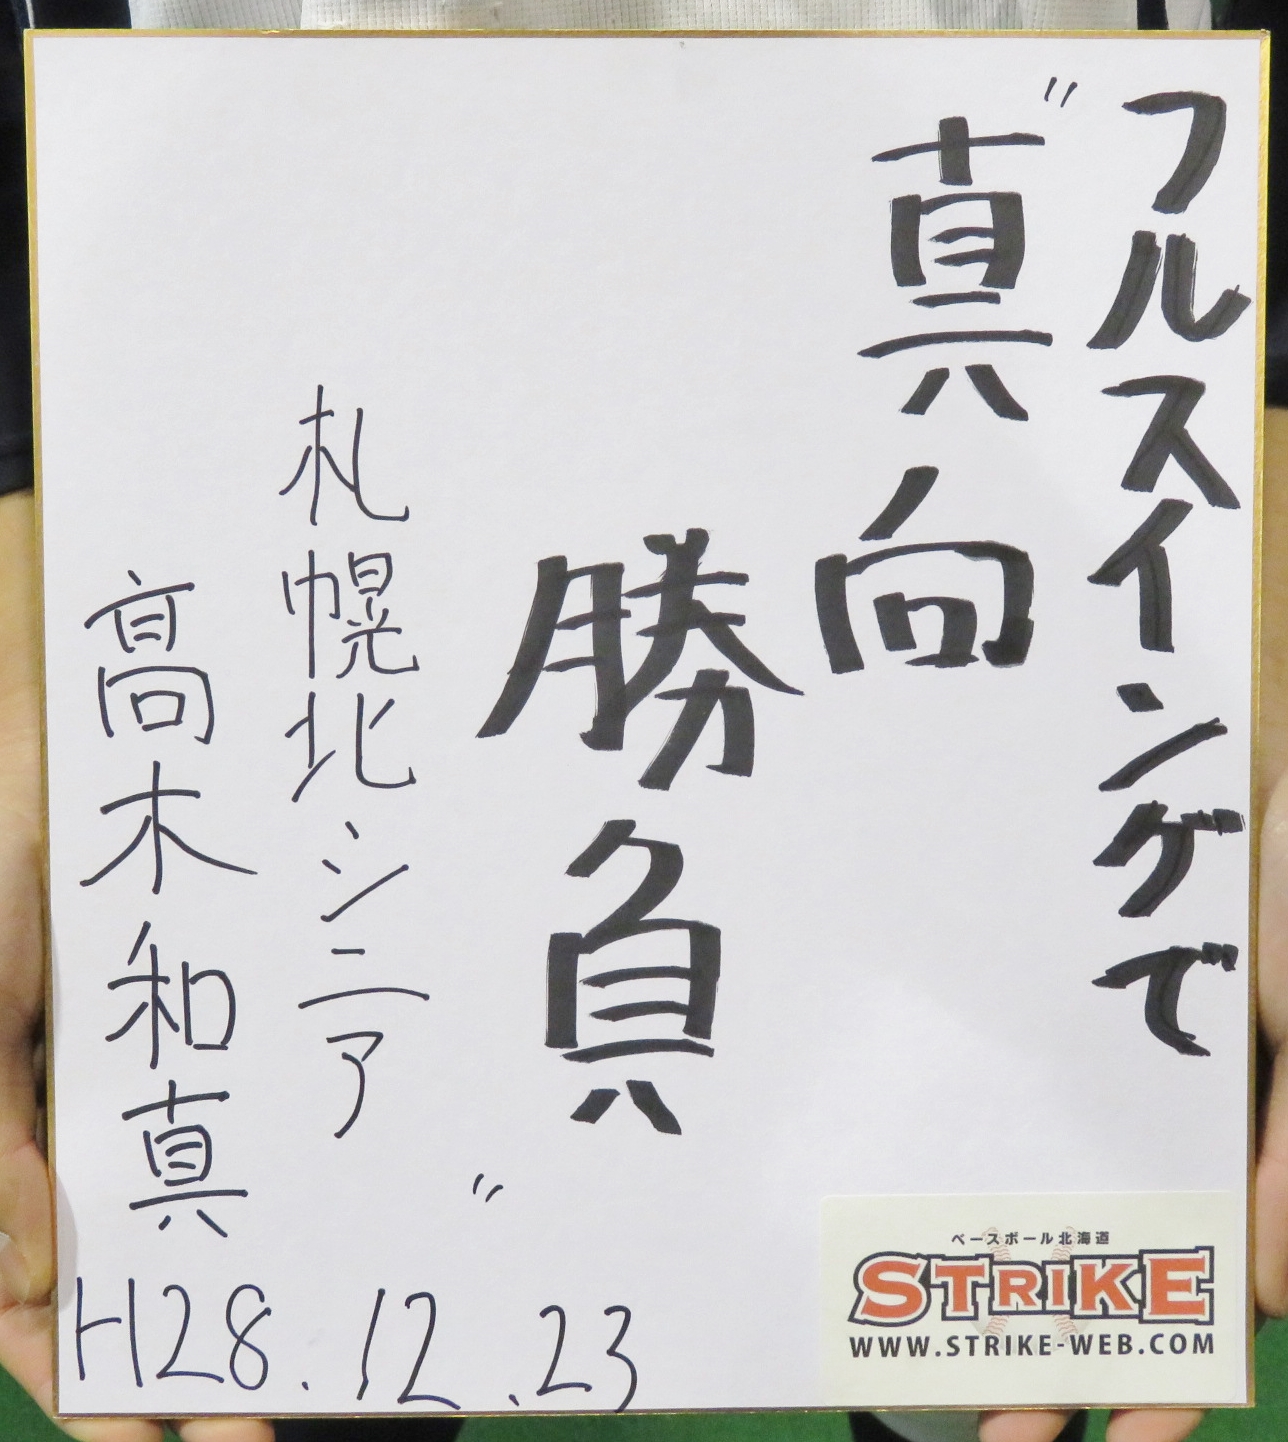 フルスイングで
"真向
勝負"
札幌北シニア
髙木和真
H28.12.23
ベースボール北海道
STRIKE
WWW.STRIKE-WEB.COM